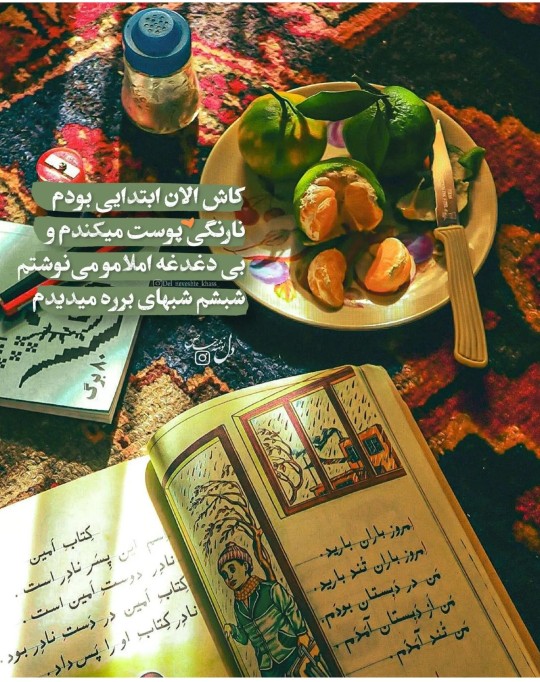 کاش الان ابتدایی بودم
نارنگی پوست میکندم و
بی دغدغه املامو می‌نوشتم
شبشم شبهای برره میدیدم
Del_navashte_kham
۸۰ برگ
امروز باران بارید.
امروز باران تُند بارید.
مَن دَر دَبستان بودَم.
مَن اَز دَبستان آمَدَم.
مَن تُند آمَدَم.
کِتابِ اَمین
اسمِ این پِسَر نادِر است.
نادِر دوستِ اَمین است.
کِتابِ اَمین دَر دَستِ نادِر بود.
نادِر کِتابِ او را پَس داد.